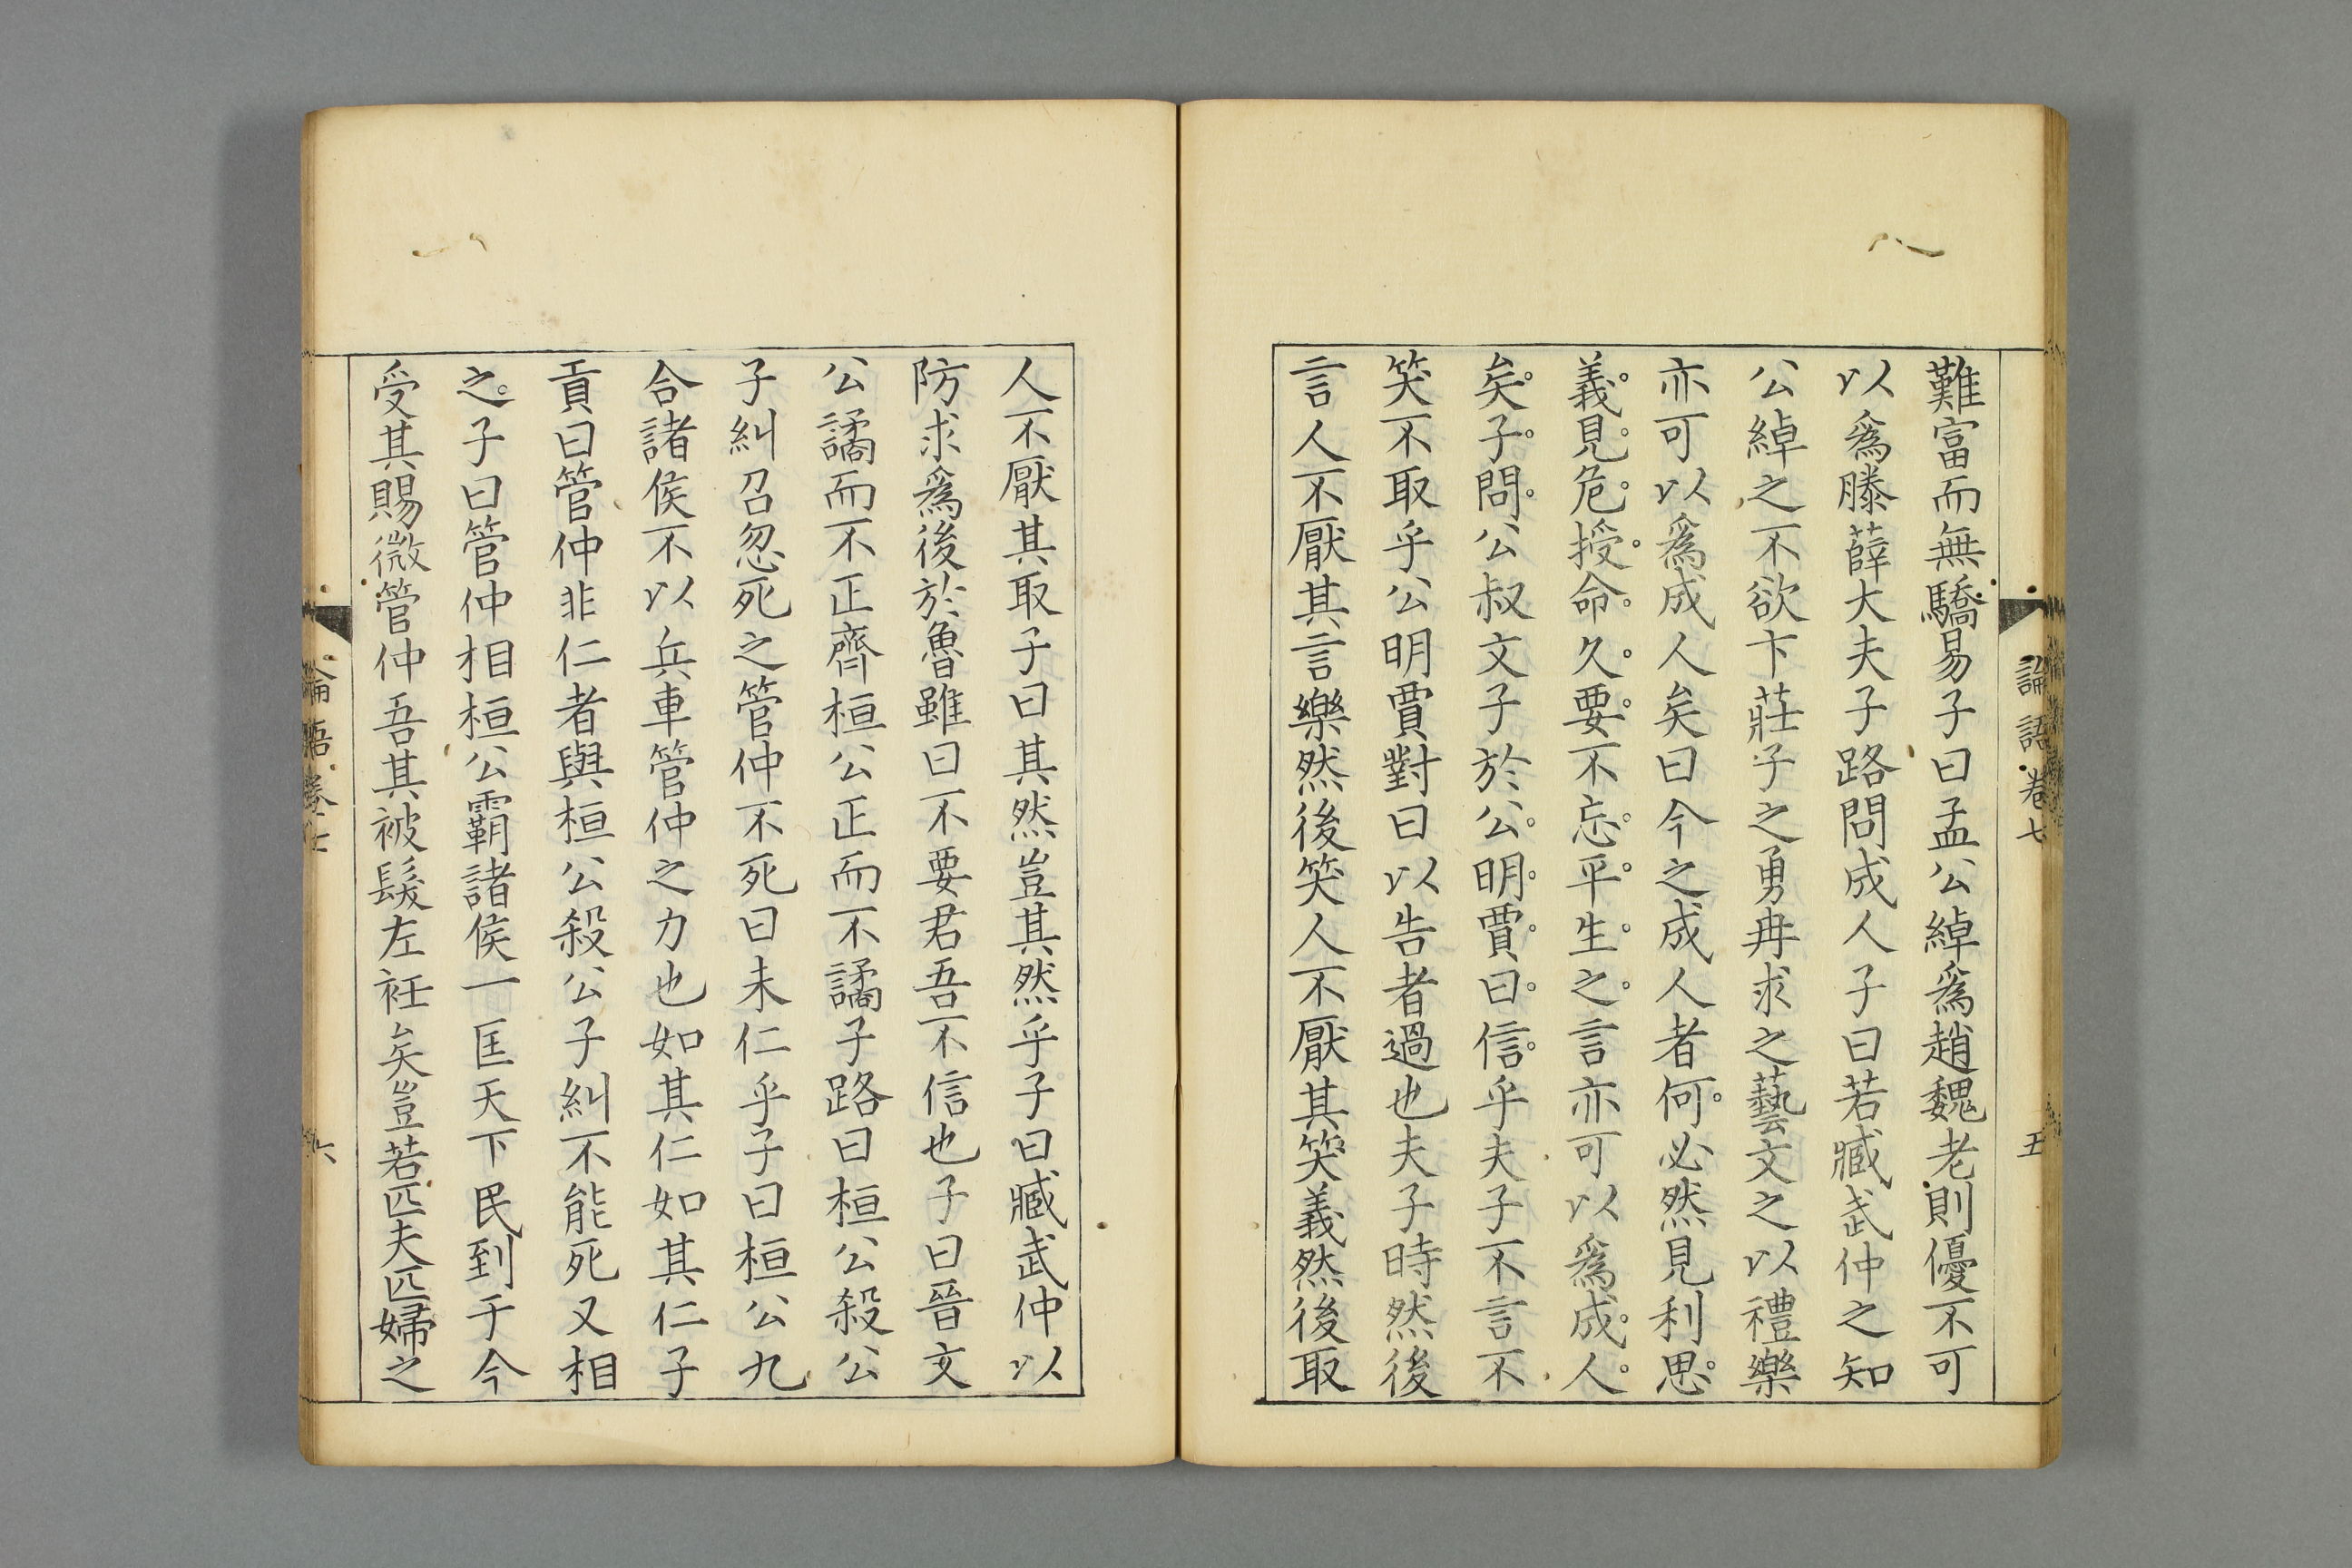 難富而無驕易子曰孟公綽爲趙魏老則優不可
以爲滕薛大夫子路問成人子曰若臧武仲之知
公綽之不欲卞莊子之勇冉求之藝文之以禮樂
亦可以爲成人矣曰今之成人者何必然見利思
義見危授命久要不忘平生之言亦可以爲成人
矣子問公叔文子於公明賈曰信乎夫子不言不
笑不取乎公明賈對曰以告者過也夫子時然後
言人不厭其言樂然後笑人不厭其笑義然後取
論語卷七
五
人不厭其取子曰其然豈其然乎子曰臧武仲以
防求爲後於魯雖曰不要君吾不信也子曰晉文
公譎而不正齊桓公正而不譎子路曰桓公殺公
子糾召忽死之管仲不死曰未仁乎子曰桓公九
合諸侯不以兵車管仲之力也如其仁如其仁子
貢曰管仲非仁者與桓公殺公子糾不能死又相
之子曰管仲相桓公霸諸侯一匡天下民到于今
受其賜微管仲吾其被髮左衽矣豈若匹夫匹婦之
論語卷七
六